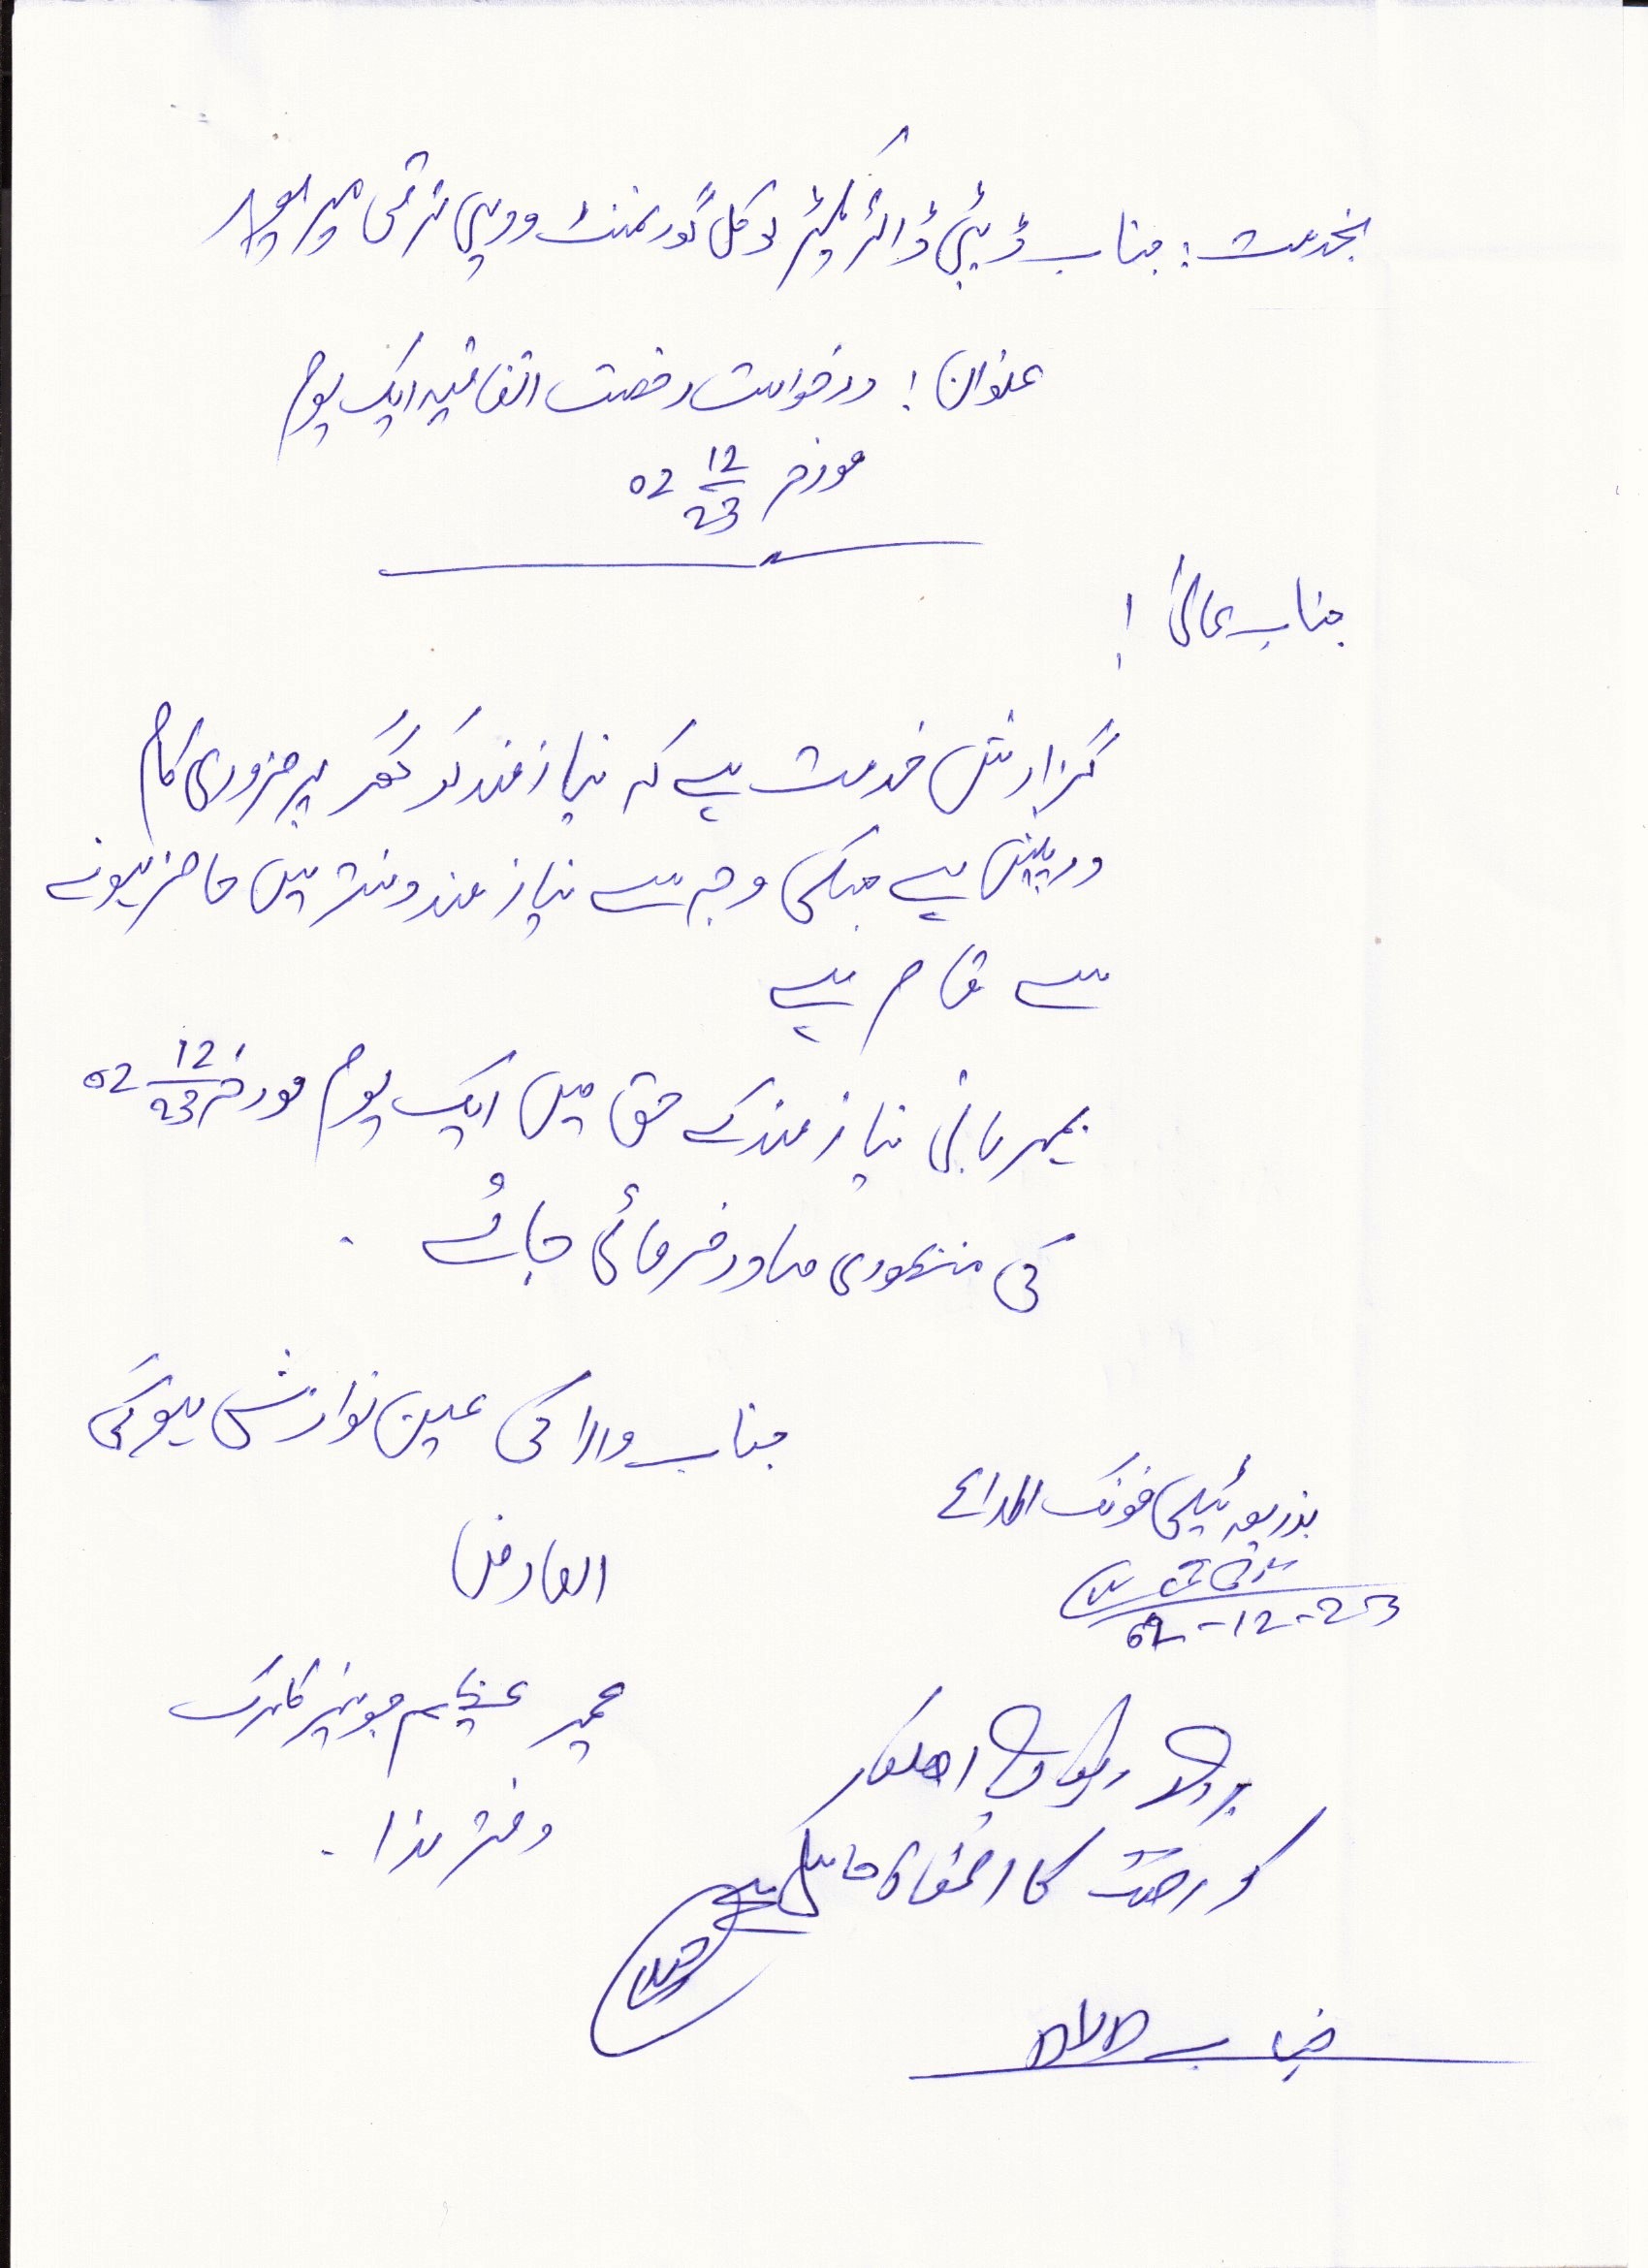 بخدمت: جناب ڈپٹی ڈائریکٹر لوکل گورنمنٹ و دیہی ترقی میرپور
عنوان! درخواست رخصت اتفاقیہ ایک یوم
مورخہ 02 12/23
جناب عالی!
گزارش خدمت ہے کہ نیازمند کو گھر پر ضروری کام
درپیش ہے جسکی وجہ سے نیازمند دفتر میں حاضر ہونے
سے قاصر ہے
بمہربانی نیازمند کے حق میں ایک یوم مورخہ 02 12/23
کی منظوری صادر فرمائی جائے۔
جناب والا کی عین نوازش ہوگی
العارض
عمیر عظیم جونیئر کلرک
دفتر ہذا۔
بذریعہ ٹیلی فونک اطلاع
02-12-23
اہلکار
کو رخصت کا استحقاق حاصل ہے
جناب DD